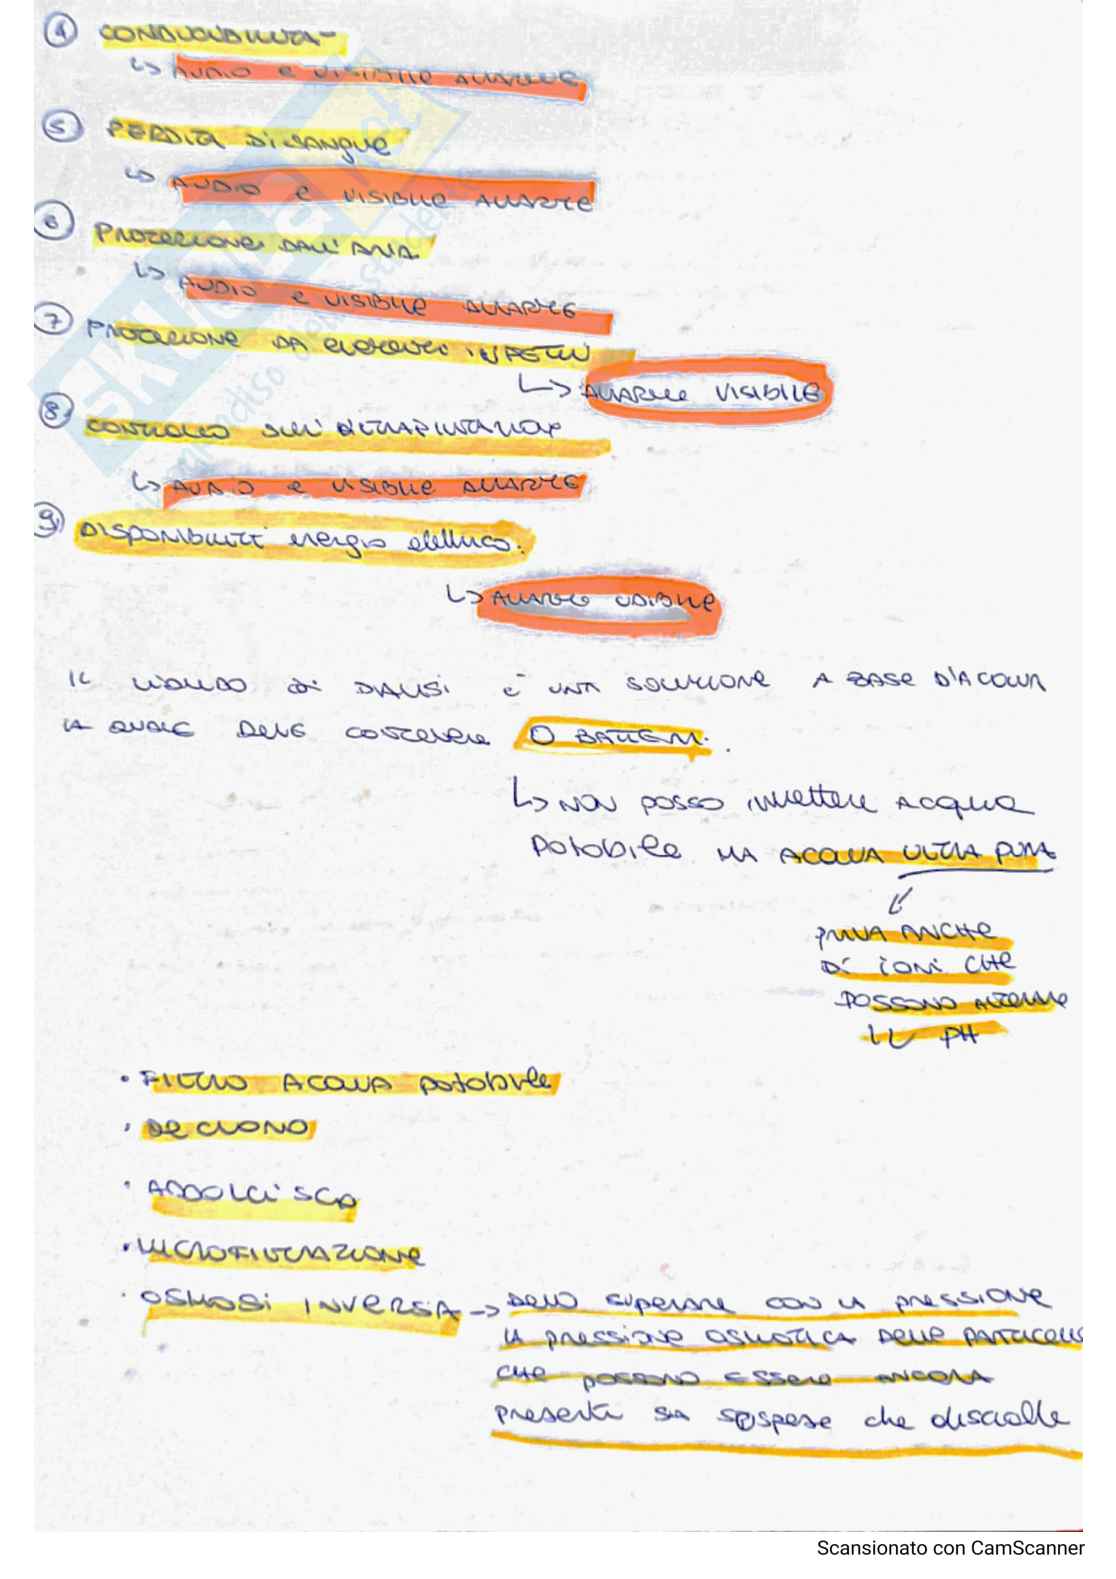 ④ CONDUCIBILITÀ
↳ AUDIO e VISIBILE ALLARME
⑤ PERDITA DI SANGUE
↳ AUDIO e VISIBILE ALLARME
⑥ PROTEZIONE DALL'ARIA
↳ AUDIO e VISIBILE ALLARME
⑦ PROTEZIONE DA ELEMENTI INFETTI
↳ ALLARME VISIBILE
⑧ CONTROLLO SULL'ULTRAFILTRAZIONE
↳ AUDIO e VISIBILE ALLARME
⑨ DISPONIBILITÀ energia elettrica.
↳ ALLARME VISIBILE
IL LIQUIDO DI DIALISI È UNA SOLUZIONE A BASE D'ACQUA
LA QUALE DEVE CONTENERE 0 BATTERI.
↳ NON POSSO immettere ACQUA
POTABILE MA ACQUA ULTRA PURA
↙
PRIVA ANCHE
DI IONI CHE
POSSONO ALTERARE
IL PH
• FILTRO ACQUA potabile
• DE CLORO
• ADDOLCISCO
• MICROFILTRAZIONE
• OSMOSI INVERSA → DEVO SUPERARE CON LA PRESSIONE
LA PRESSIONE OSMOTICA DELLE PARTICELLE
CHE POSSONO ESSERE ANCORA
presenti SIA SOSPESE che disciolte
Scansionato con CamScanner